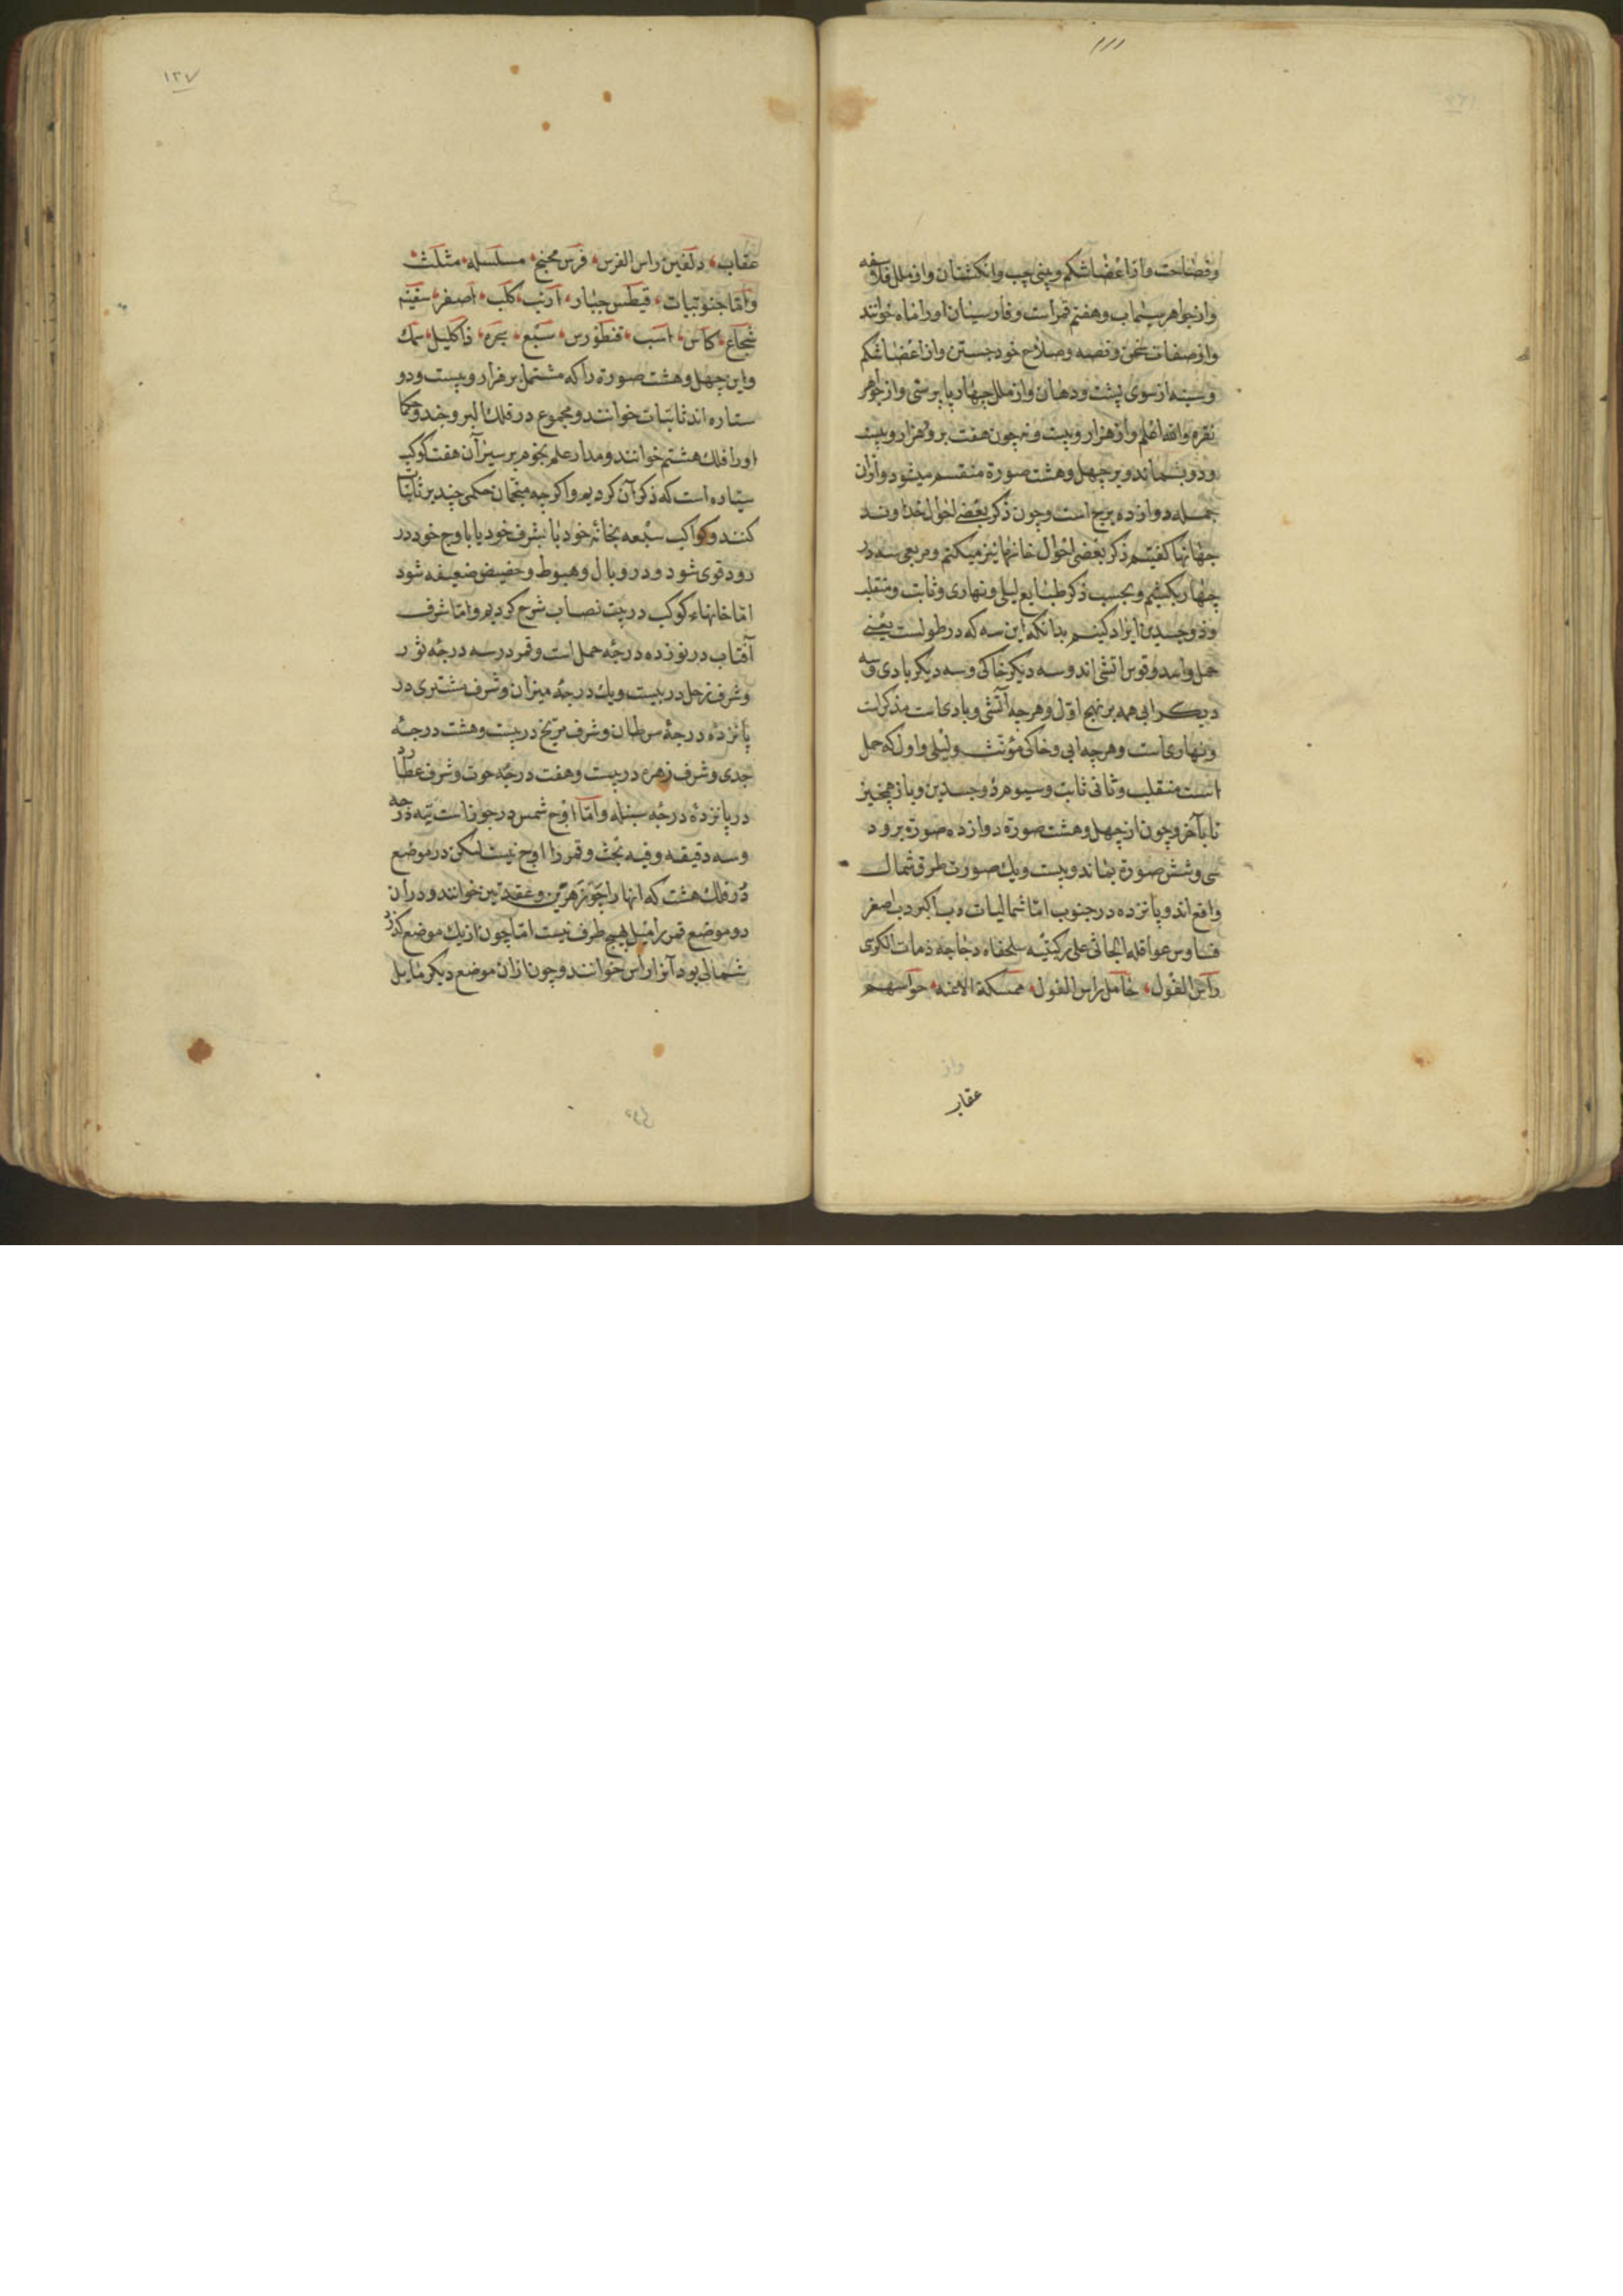 وفصاحت واز اعضا شکم وبینی چپ وانکشتان واز ملل فلاسفه
واز جواهر سیماب وهفتم قمر است وفارسیان او را ماه خوانند
واز صفات سخن وقصه وصلاح خود جستن واز اعضا شکم
وسینه از سوی پشت ودهان واز ملل چهارپا پرستی واز جواهر
نقره والله اعلم واز هزار وبیست ونه چون هفت برود هزار وبیست
ودو بماند وبر چهل وهشت صورة منقسم میشود واز ان
جمله دوازده برج است وچون ذکر بعضی احوال خداوند
خانها کفتیم ذکر بعضی احوال خانها نیز میکنیم ومربعی سه در
چهار بکشیم وبحسب ذکر طبایع لیلی ونهاری وثابت ومنقلب
وذو جسدین ایراد کنیم بدانکه این سه که در طولست یعنی
حمل واسد وقوس اتشی اند وسه دیکر خاکی وسه دیکر بادی وسه
دیکر ابی همه بر نهج اول وهرچه آتشی وبادی است مذکر است
ونهاری است وهرچه ابی وخاکی مؤنث ولیلی واول که حمل
است منقلب وثانی ثابت وسیوم ذو جسدین وباز همچنین
تا بآخر وچون از چهل وهشت صورة دوازده صورة برود
سی وشش صورة بماند وبیست ویک صورت طرف شمال
واقع اند وپانزده در جنوب اما شمالیات دب اکبر دب اصغر
قیقاوس عوا فکه الجاثی علی رکبتیه سلحفاه دجاجه ذات الکرسی
رأس الغول حامل راس الغول ممسکة الاعنه حوا سهم
عقاب
۱۲۷
عقاب دلفین راس الفرس فرس مجنح مسلسله مثلث
واما جنوبیات قیطس جبار ارنب کلب اصغر سفینه
شجاع کاس اسب قنطورس سبع مجره اکلیل سمک
واین چهل وهشت صورة را که مشتمل بر هزار وبیست ودو
ستاره اند ثابتات خوانند ومجموع در فلک البروجند وحکما
او را فلک هشتم خوانند ومدار علم نجوم بر سیر آن هفت کوکب
سیاره است که ذکر آن کردیم واکرچه منجمان حکمی چند بر ثابتات
کنند وکواکب سبعه بخانهٔ خود یا بشرف خود یا باوج خود در
رود قوی شود ودر وبال وهبوط وحضیض ضعیف شود
اما خانهاء کوکب در بیت نصاب شرح کردیم واما شرف
آفتاب در نوزده درجهٔ حمل است وقمر در سه درجهٔ ثور
وشرف زحل در بیست ویک درجهٔ میزان وشرف مشتری در
پانزده درجهٔ سرطان وشرف مریخ در بیست وهشت درجهٔ
جدی وشرف زهره در بیست وهفت درجهٔ حوت وشرف عطارد
در پانزده درجهٔ سنبله واما اوج شمس در جوزاست درجه
وسه دقیقه وفیه بحث وقمر را اوج نیست لیکن در موضع
در فلک هست که انها را جوزهرین وعقدتین خوانند ودر ان
دو موضع قمر را میل بهیچ طرف نیست اما چون از یک موضع کذرد
شمالی بود آنرا راس خوانند وچون از ان موضع دیکر مایل